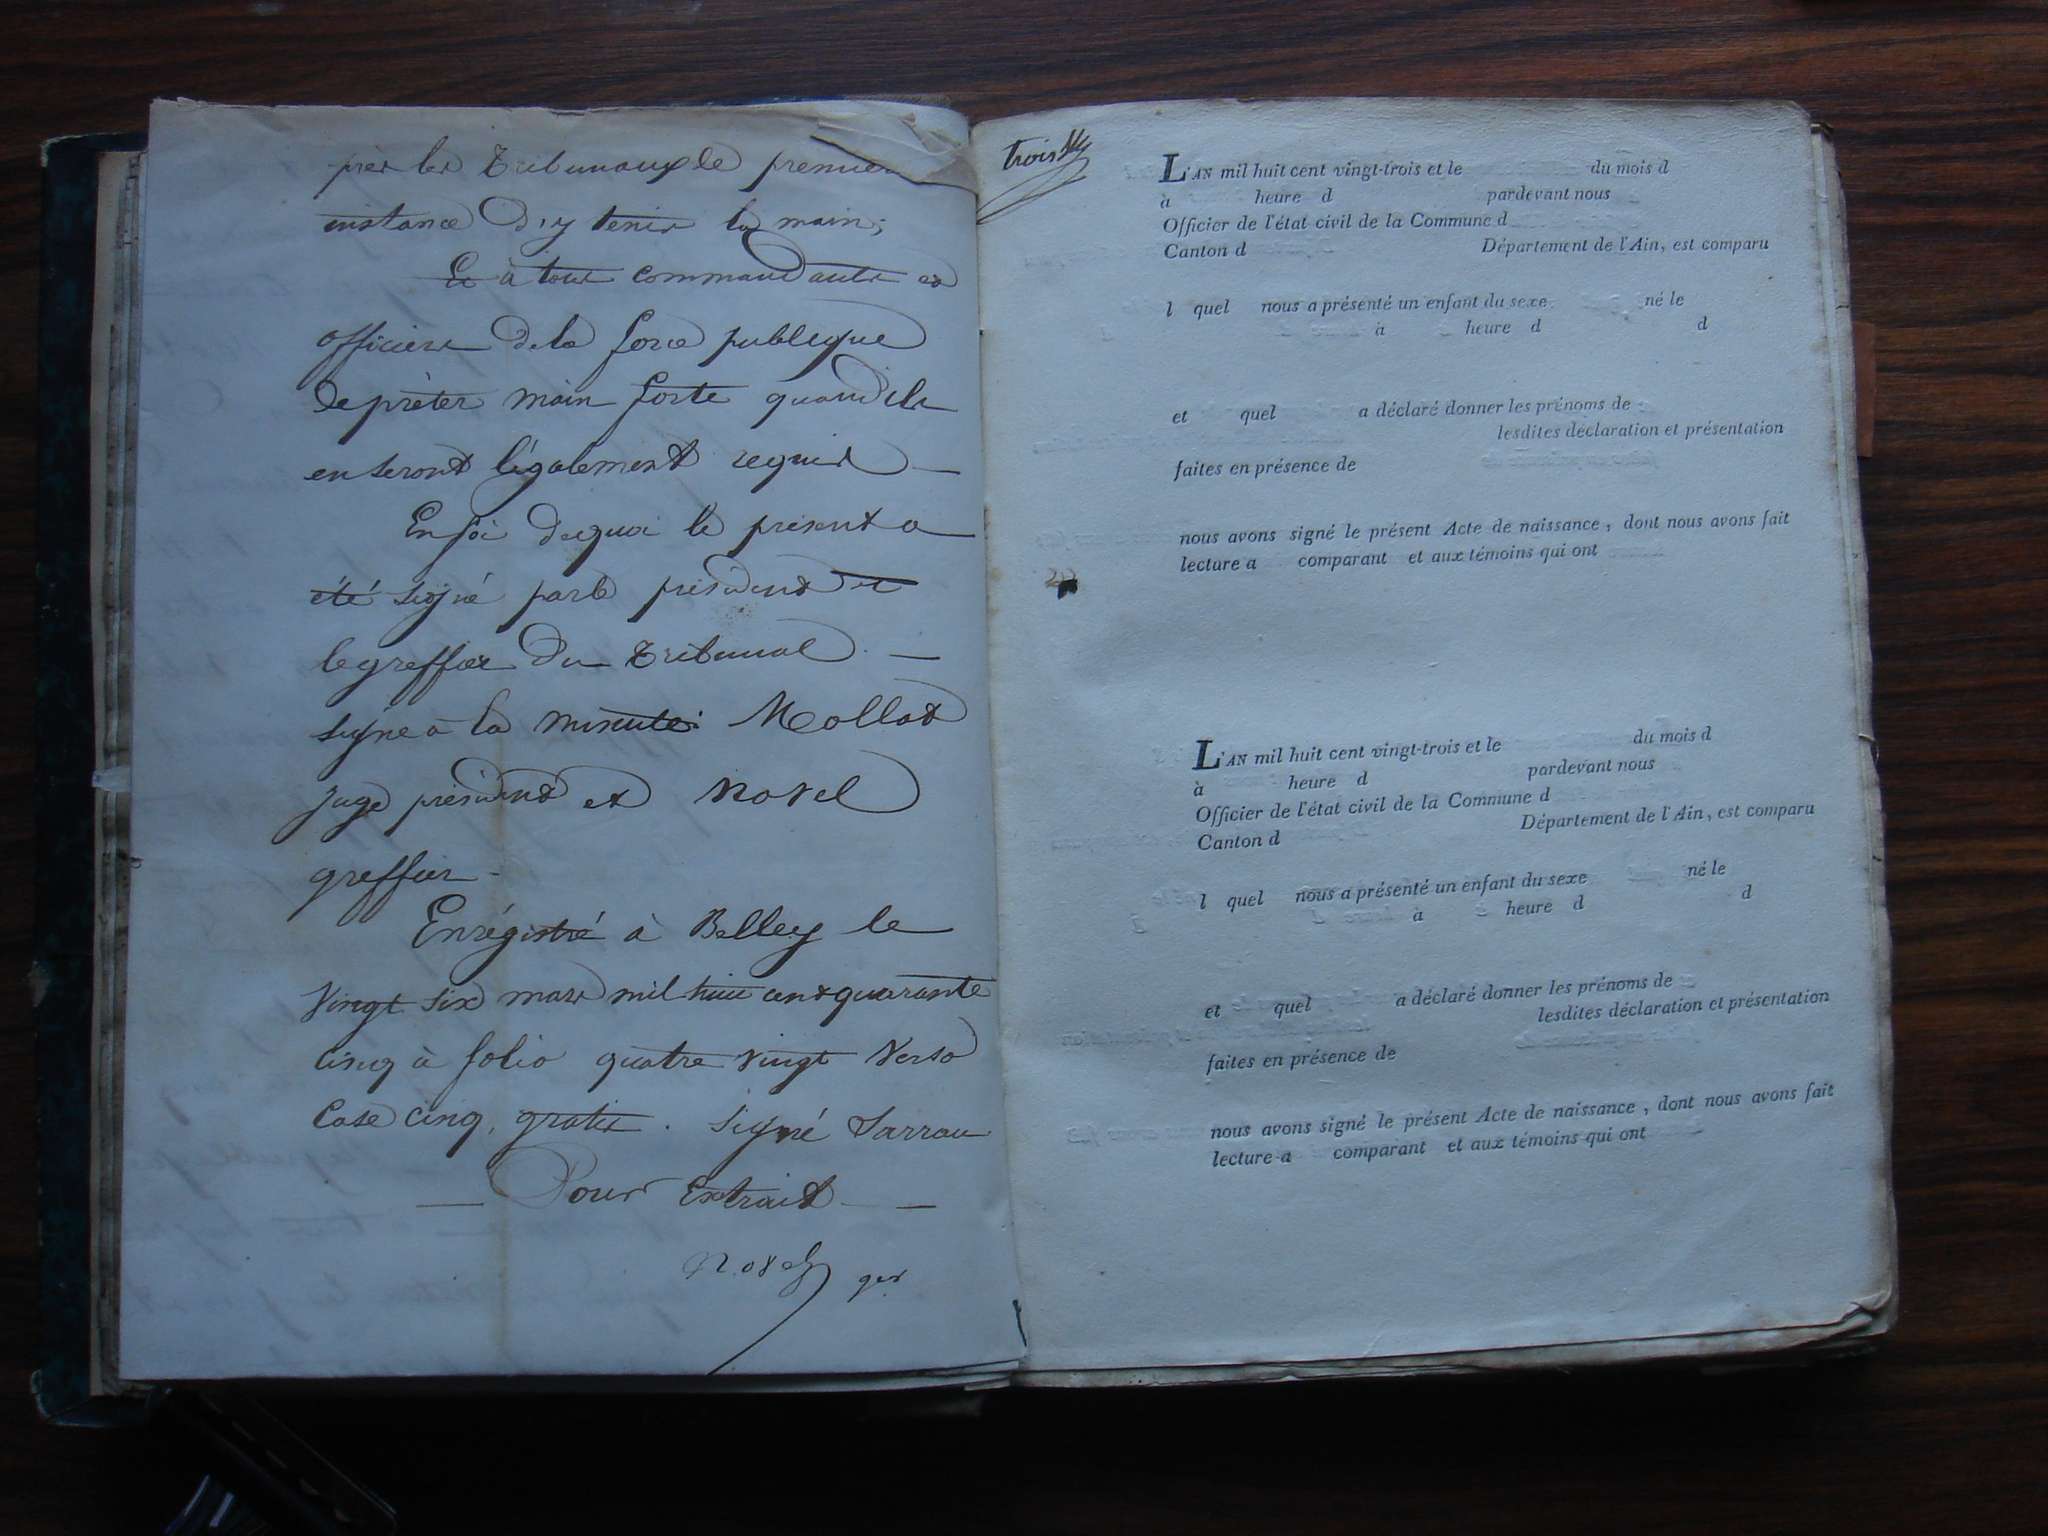 près les Tribunaux de premiere
instance d'y tenir la main;
Et à tous commandants et
officiers de la force publique
de prêter main forte quand ils
en seront légalement requis —
En foi de quoi le présent a
été signé par le président et
le greffier du Tribunal —
signé à la minute: Mollat
juge président et Novel
greffier -
Enrégistré à Belley le
Vingt six mars mil huit cent quarante
cinq à folio quatre vingt verso
Case cinq, gratis. signé Sarrau
— Pour Extrait —
Novel ger
trois
L'AN mil huit cent vingt-trois et le du mois d
à heure d pardevant nous
Officier de l'état civil de la Commune d
Canton d Département de l'Ain, est comparu
l quel nous a présenté un enfant du sexe né le
à heure d d
et quel a déclaré donner les prénoms de
lesdites déclaration et présentation
faites en présence de
nous avons signé le présent Acte de naissance, dont nous avons fait
lecture a comparant et aux témoins qui ont
L'AN mil huit cent vingt-trois et le du mois d
à heure d pardevant nous
Officier de l'état civil de la Commune d
Canton d Département de l'Ain, est comparu
l quel nous a présenté un enfant du sexe né le
à heure d d
et quel a déclaré donner les prénoms de
lesdites déclaration et présentation
faites en présence de
nous avons signé le présent Acte de naissance, dont nous avons fait
lecture a comparant et aux témoins qui ont